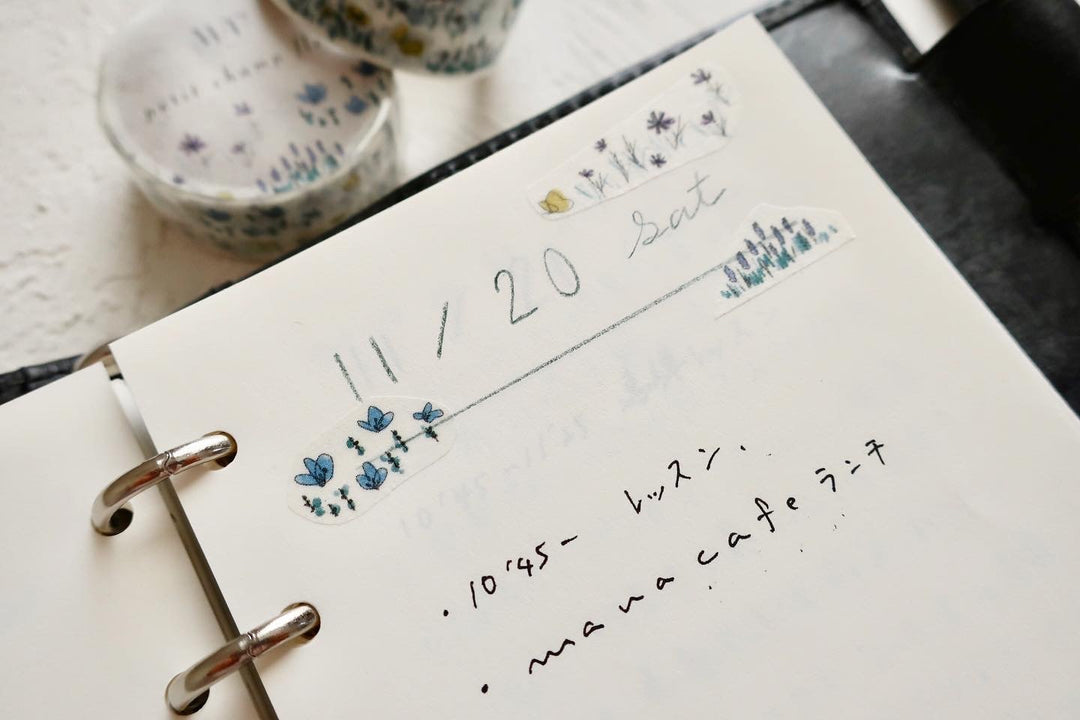 petit
11/20 sat
・10'45- レッスン.
・mana cafe ランチ